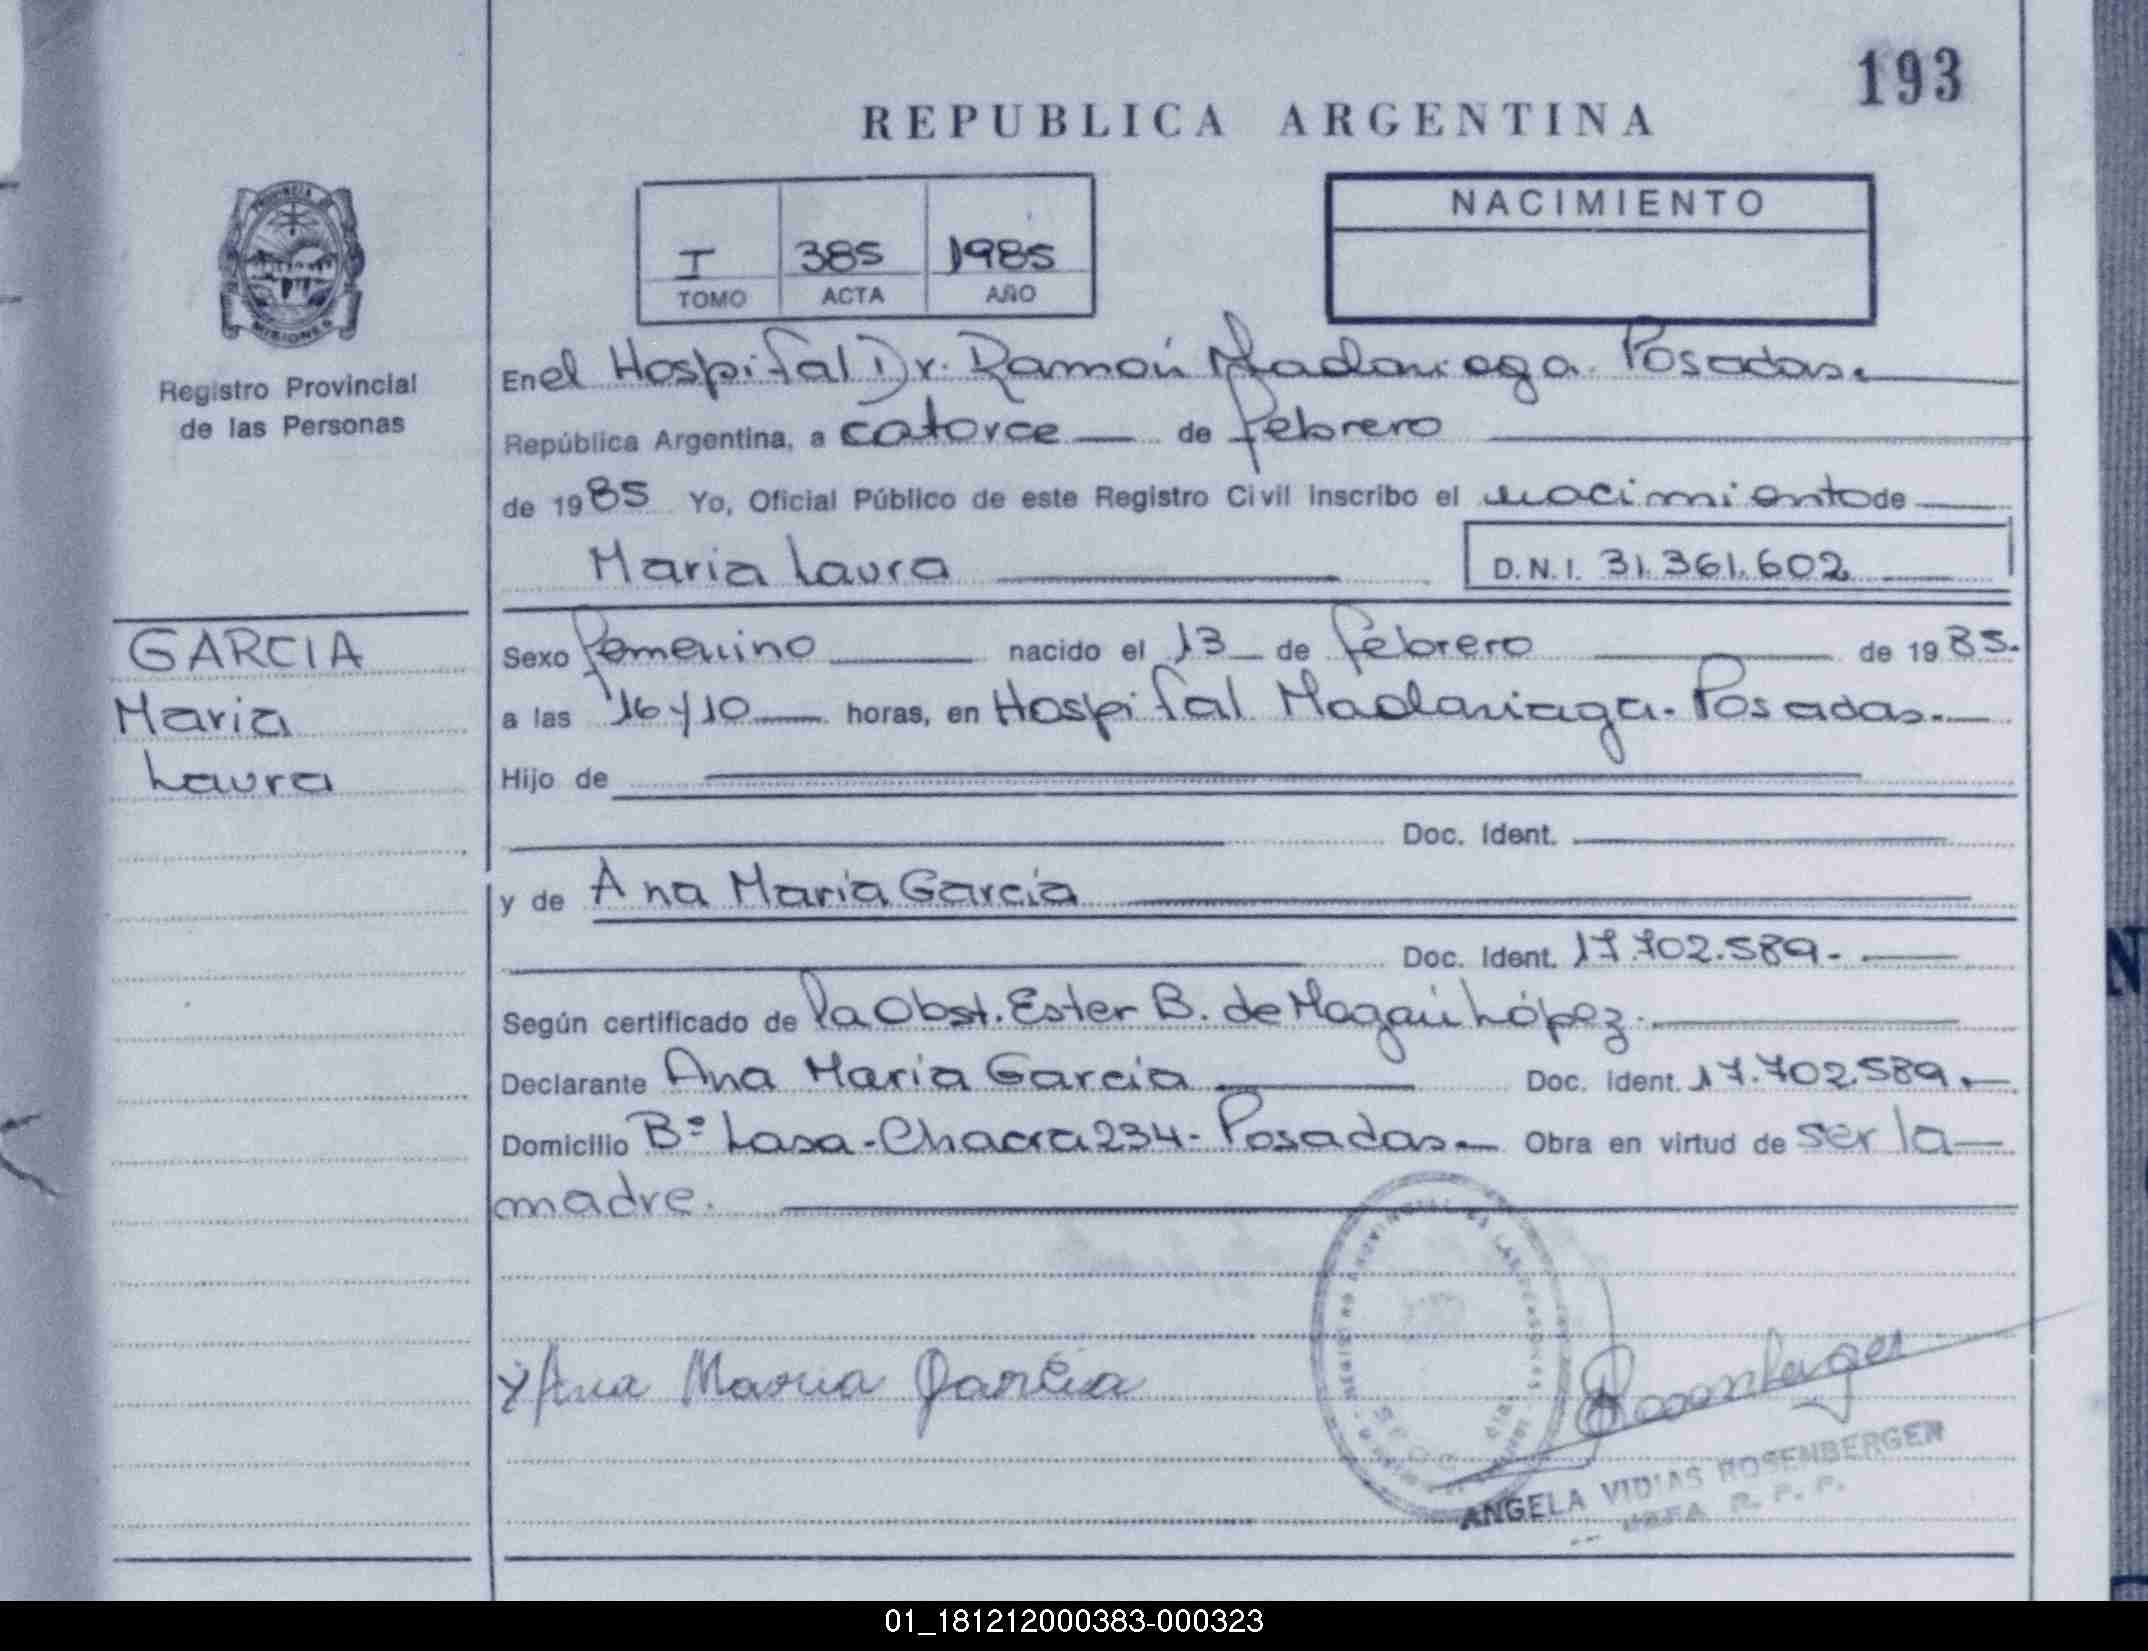 193
REPUBLICA ARGENTINA
PROVINCIA DE
MISIONES
Registro Provincial
de las Personas
I 385 1985
TOMO ACTA AÑO
NACIMIENTO
En el Hospital Dr. Ramón Madariaga. Posadas.
República Argentina, a catorce de febrero
de 1985 Yo, Oficial Público de este Registro Civil inscribo el nacimiento de
Maria Laura D.N.I. 31.361.602
GARCIA
Maria
Laura
Sexo femenino nacido el 13 de febrero de 1985.
a las 16 y 10 horas, en Hospital Madariaga. Posadas.
Hijo de
Doc. Ident.
y de Ana Maria Garcia
Doc. Ident. 17.702.589.
Según certificado de la Obst. Ester B. de Magań López.
Declarante Ana Maria Garcia Doc. Ident. 17.702.589.
Domicilio Bº Lasa - Chacra 234 - Posadas. Obra en virtud de ser la
madre.
Ana Maria Garcia
ANGELA VIDIAS ROSENBERGER
R. P. P.
01_181212000383-000323